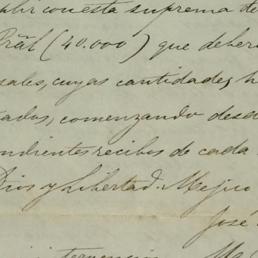 plir con esta suprema de
Gral (40.000) que deber
sales, cuyas cantidades, h
tados, comenzando desd
ndientes recibos de cada
Dios y Libertad. Mejico
José